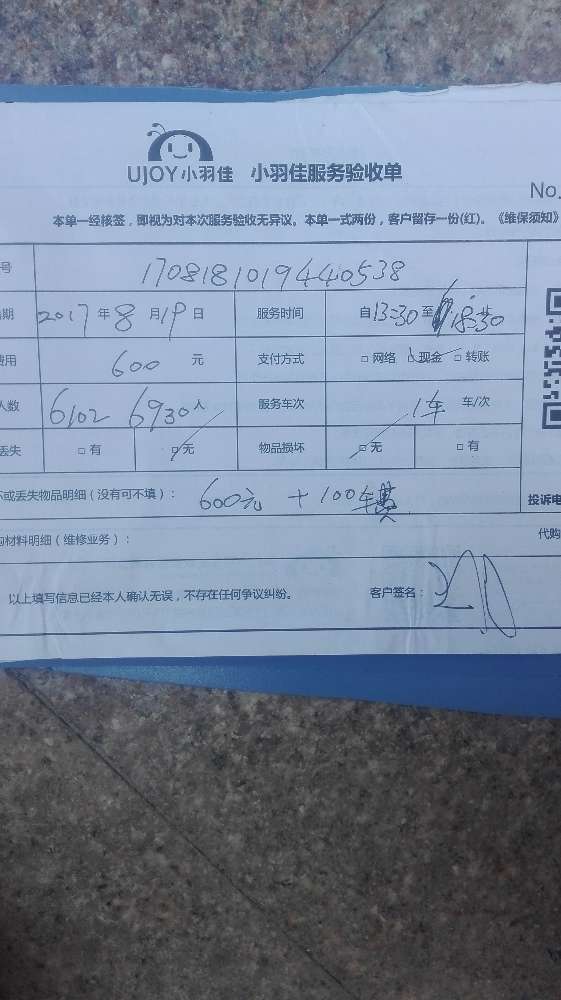 UJOY小羽佳 小羽佳服务验收单
No.
本单一经核签，即视为对本次服务验收无异议。本单一式两份，客户留存一份(红)。《维保须知》
号 1708181019440538
期 2017年8月19日 服务时间 自13:30至18:30
费用 600 元 支付方式 □网络 □现金 □转账
人数 6102 6930人 服务车次 1车 车/次
丢失 □有 □无 物品损坏 □无 □有
坏或丢失物品明细（没有可不填）： 600元 + 100车费 投诉电
购材料明细（维修业务）： 代购
以上填写信息已经本人确认无误，不存在任何争议纠纷。 客户签名：